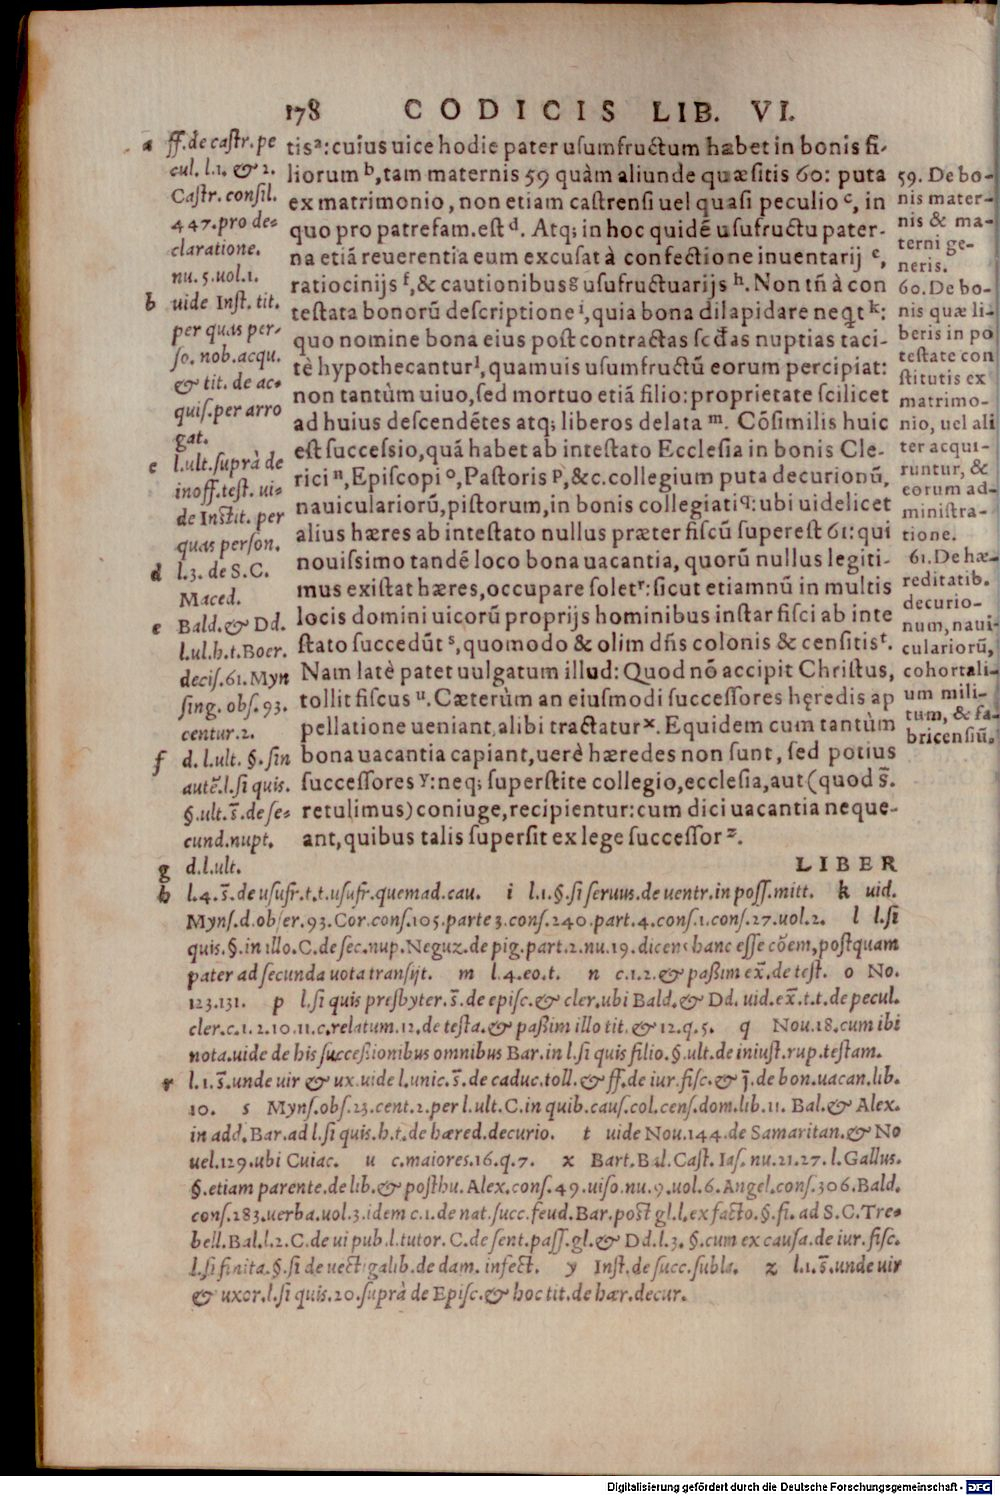 178 CODICIS LIB. VI.
tisᵃ: cuius uice hodie pater usumfructum habet in bonis fi-
liorum ᵇ, tam maternis 59 quàm aliunde quæsitis 60: puta
ex matrimonio, non etiam castrensi uel quasi peculio ᶜ, in
quo pro patrefam. est ᵈ. Atq; in hoc quidẽ usufructu pater-
na etiã reuerentia eum excusat à confectione inuentarij ᵉ,
ratiocinijs ᶠ, & cautionibusᵍ usufructuarijs ʰ. Non tñ à con
testata bonorũ descriptione ⁱ, quia bona dilapidare neq̃t ᵏ:
quo nomine bona eius post contractas scđas nuptias taci-
tè hypothecanturˡ, quamuis usumfructũ eorum percipiat:
non tantùm uiuo, sed mortuo etiã filio: proprietate scilicet
ad huius descendẽtes atq; liberos delata ᵐ. Cõsimilis huic
est successio, quã habet ab intestato Ecclesia in bonis Cle-
rici ⁿ, Episcopi ᵒ, Pastoris ᵖ, &c. collegium puta decurionũ,
nauiculariorũ, pistorum, in bonis collegiati ᑫ: ubi uidelicet
alius hæres ab intestato nullus præter fiscũ superest 61: qui
nouissimo tandẽ loco bona uacantia, quorũ nullus legiti-
mus existat hæres, occupare soletʳ: sicut etiamnũ in multis
locis domini uicorũ proprijs hominibus instar fisci ab inte
stato succedũt ˢ, quomodo & olim dñs colonis & censitisᵗ.
Nam latè patet uulgatum illud: Quod nõ accipit Christus,
tollit fiscus ᵘ. Cæterùm an eiusmodi successores hęredis ap
pellatione ueniant, alibi tractaturˣ. Equidem cum tantùm
bona uacantia capiant, uerè hæredes non sunt, sed potius
successores ʸ: neq; superstite collegio, ecclesia, aut (quod s̃.
retulimus) coniuge, recipientur: cum dici uacantia neque-
ant, quibus talis supersit ex lege successor ᶻ.
LIBER
a ff. de castr. pe
cul. l.1. & 2.
Castr. consil.
447. pro de-
claratione.
nu. 5. uol.1.
b uide Inst. tit.
per quas per-
so. nob. acqu.
& tit. de ac-
quis. per arro
gat.
c l.ult. suprà de
inoff. test. ui-
de Instit. per
quas person.
d l.3. de S.C.
Maced.
e Bald. & Dd.
l.ul.h.t. Boer.
decis.61. Myn
sing. obs.93.
centur.2.
f d. l. ult. §. sin
autẽ. l. si quis.
§. ult. s̃. de se-
cund. nupt.
g d.l.ult.
59. De bo-
nis mater-
nis & ma-
terni ge-
neris.
60. De bo-
nis quæ li-
beris in po
testate con
stitutis ex
matrimo-
nio, uel ali
ter acqui-
runtur, &
eorum ad-
ministra-
tione.
61. De hæ-
reditatib.
decurio-
num, naui-
culariorũ,
cohortali-
um mili-
tum, & fa-
bricensiũ.
h l.4. s̃. de usufr. t.t. usufr. quemad. cau. i l.1. §. si seruus. de uentr. in poss. mitt. k uid.
Myns. d. obser. 93. Cor. cons. 105. parte 3. cons. 240. part. 4. cons. 1. cons. 27. uol. 2. l l. si
quis. §. in illo. C. de sec. nup. Neguz. de pig. part. 2. nu. 19. dicens hanc esse cõem, postquam
pater ad secunda uota transijt. m l.4. eo. t. n c.1.2. & paßim ex̃. de test. o No.
123.131. p l. si quis presbyter. s̃. de episc. & cler. ubi Bald. & Dd. uid. ex̃. t.t. de pecul.
cler. c.1.2.10.11. c. relatum. 12. de testa. & paßim illo tit. & 12. q. 5. q Nou. 18. cum ibi
nota. uide de his succeßionibus omnibus Bar. in l. si quis filio. §. ult. de iniust. rup. testam.
r l.1. s̃. unde uir & ux. uide l. unic. s̃. de caduc. toll. & ff. de iur. fisc. & j̃. de bon. uacan. lib.
10. s Myns. obs. 23. cent. 2. per l. ult. C. in quib. caus. col. cens. dom. lib. 11. Bal. & Alex.
in add. Bar. ad l. si quis. h.t. de hæred. decurio. t uide Nou. 144. de Samaritan. & No
uel. 129. ubi Cuiac. u c. maiores. 16. q. 7. x Bart. Bal. Cast. Ias. nu. 21.27. l. Gallus.
§. etiam parente. de lib. & posthu. Alex. cons. 49. uiso. nu. 9. uol. 6. Angel. cons. 306. Bald.
cons. 283. uerba. uol. 3. idem c.1. de nat. succ. feud. Bar. post gl. l. ex facto. §. fi. ad S.C. Tre-
bell. Bal. l.2. C. de ui pub. l. tutor. C. de sent. pass. gl. & Dd. l.3. §. cum ex causa. de iur. fisc.
l. si finita. §. si de uectigalib. de dam. infect. y Inst. de succ. subla. z l.1. s̃. unde uir
& uxor. l. si quis. 20. suprà de Episc. & hoc tit. de hær. decur.
Digitalisierung gefördert durch die Deutsche Forschungsgemeinschaft - DFG